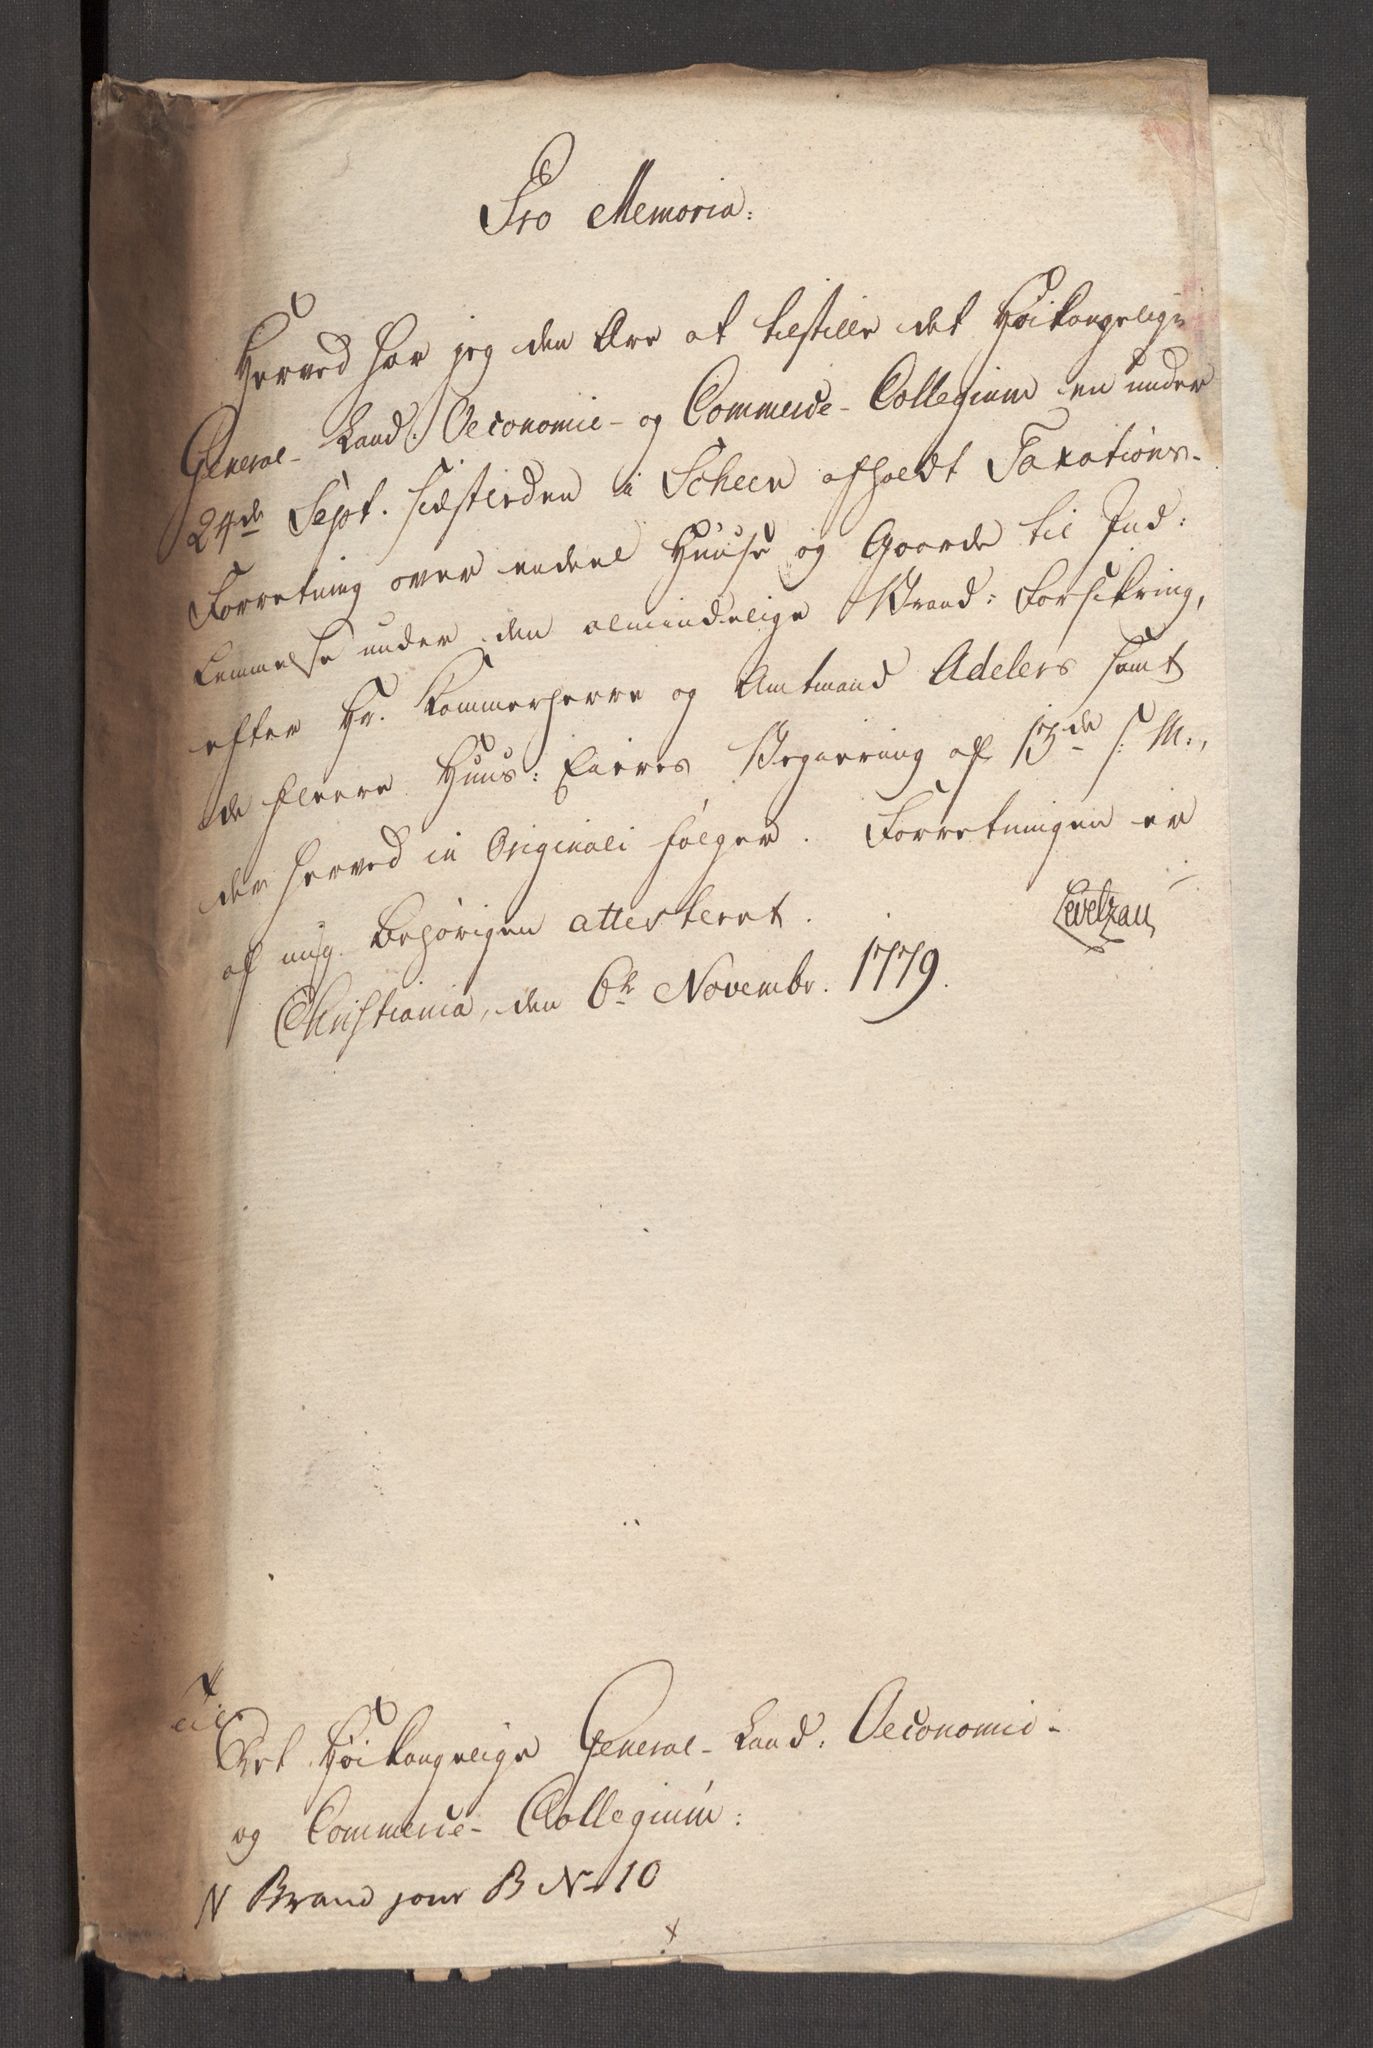 Pro Memoria:
Herved har jeg den Ære at tilstille det Høikongelige
General-Land-Oeconomie- og Commerce-Collegium en under
24de Sept. sidstleden i Scheen afholdt Taxations-
Forretning over endeel Huuse og Gaarde til Ind:
lemmelse under den almindelige Brand: Forsikring,
efter Hr. Kammerherre og Amtmand Adelers samt
de fleere Huus: Eieres Begjæring af 13de s: M:,
der herved in Originali følger. Forretningen er
af mig behørigen attesteret.
Levetzau
Christiania, den 6te Novembr. 1779.
Til
Det Høikongelige General-Land-Oeconomie-
og Commerce-Collegium:
N Brand jour B No 10